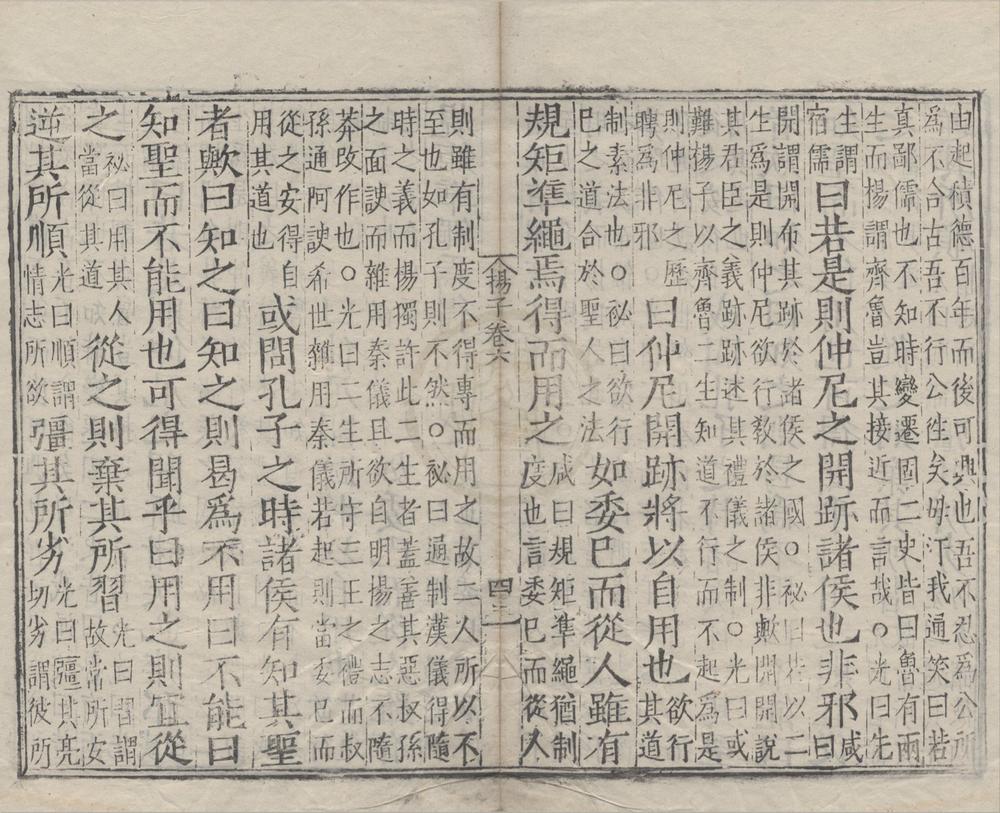 由起積德百年而後可興也吾不忍為公所
為不合古吾不行公徃矣毋汙我通笑曰若
真鄙儒也不知時變遷固二史皆曰魯有兩
生而楊謂齊魯豈其接近而言哉○光曰先
生謂
宿儒
曰若是則仲尼之開跡諸侯也非邪
咸
曰
開謂開布其跡於諸侯之國○祕曰若以二
生為是則仲尼欲行敎於諸侯非歟開開說
其君臣之義跡跡述其禮儀之制○光曰或
難揚子以齊魯二生知道不行而不起為是
則仲尼之歷
聘為非邪
曰仲尼開跡將以自用也
欲行
其道
制素法也○祕曰欲行
已之道合於聖人之法
如委已而從人雖有
規矩準繩焉得而用之
咸曰規矩準繩猶制
度也言委已而從人
揚子卷六
四
則雖有制度不得專而用之故二人所以不
至也如孔子則不然○祕曰通制漢儀得隨
時之義而楊獨許此二生者蓋善其惡叔孫
之面諛而雜用秦儀且欲自明揚之志不隨
莽改作也○光曰二生所守三王之禮而叔
孫通阿諛希世雜用秦儀若起則當委已而
從之安得自
用其道也
或問孔子之時諸侯有知其聖
者歟曰知之曰知之則曷爲不用曰不能曰
知聖而不能用也可得聞乎曰用之則宜從
之
祕曰用其人
當從其道
從之則棄其所習
光曰習謂
故常所安
逆其所順
光曰順謂
情志所欲
彊其所劣
光曰彊其亮
切劣謂彼所